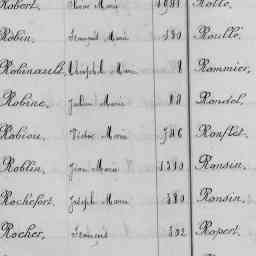 Robert, Pierre Marie 1081 Rollo,
Robin, François Marie 130 Roullé,
Robinault, Théophile Marie 8 Rommier,
Robine, Julien Marie Rondel,
Rabiou, Victor Marie 746 Ronflet,
Roblin, Jean Marie 1310 Ronsin,
Rochefort, Joseph Marie 380 Ronsin,
Rocher, François 302 Ropert,